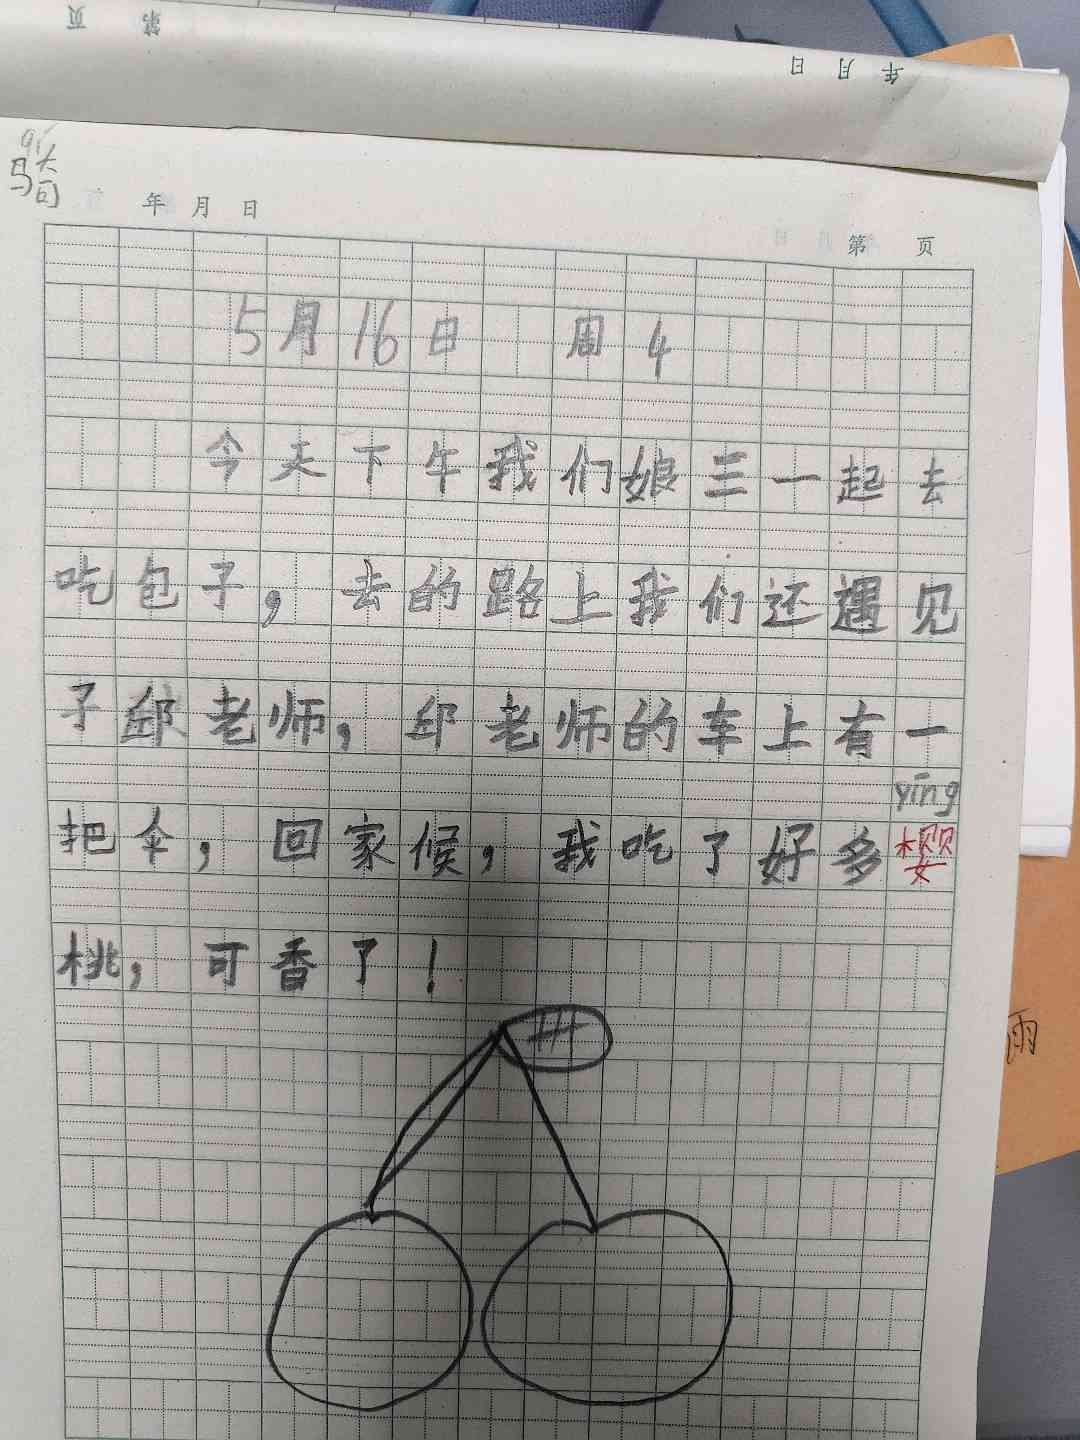 页 第
年 月 日
年 月 日
第 页
5月16日 周4
今天下午我们娘三一起去
吃包子,去的路上我们还遇见
了邱老师,邱老师的车上有一
yīng
把伞,回家候,我吃了好多樱
桃,可香了!
雨